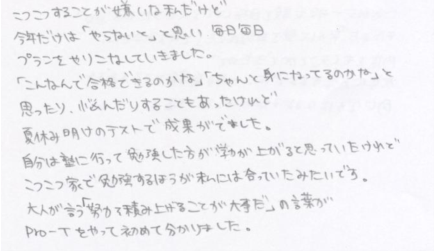 こつこつすることが嫌いな私だけど
今年だけは「やらないと」と思い 毎日毎日
プランをやりこなしていきました。
「こんなんで合格できるのかな」「ちゃんと身になってるのかな」と
思ったり、悩んだりすることもあったけれど
夏休み明けのテストで成果がでました。
自分は塾に行って勉強した方が学力が上がると思っていたけれど
こつこつ家で勉強するほうが私には合っていたみたいです。
大人が言う「努力で積み上げることが大事だ」の言葉が
Pro-Tをやって初めて分かりました。